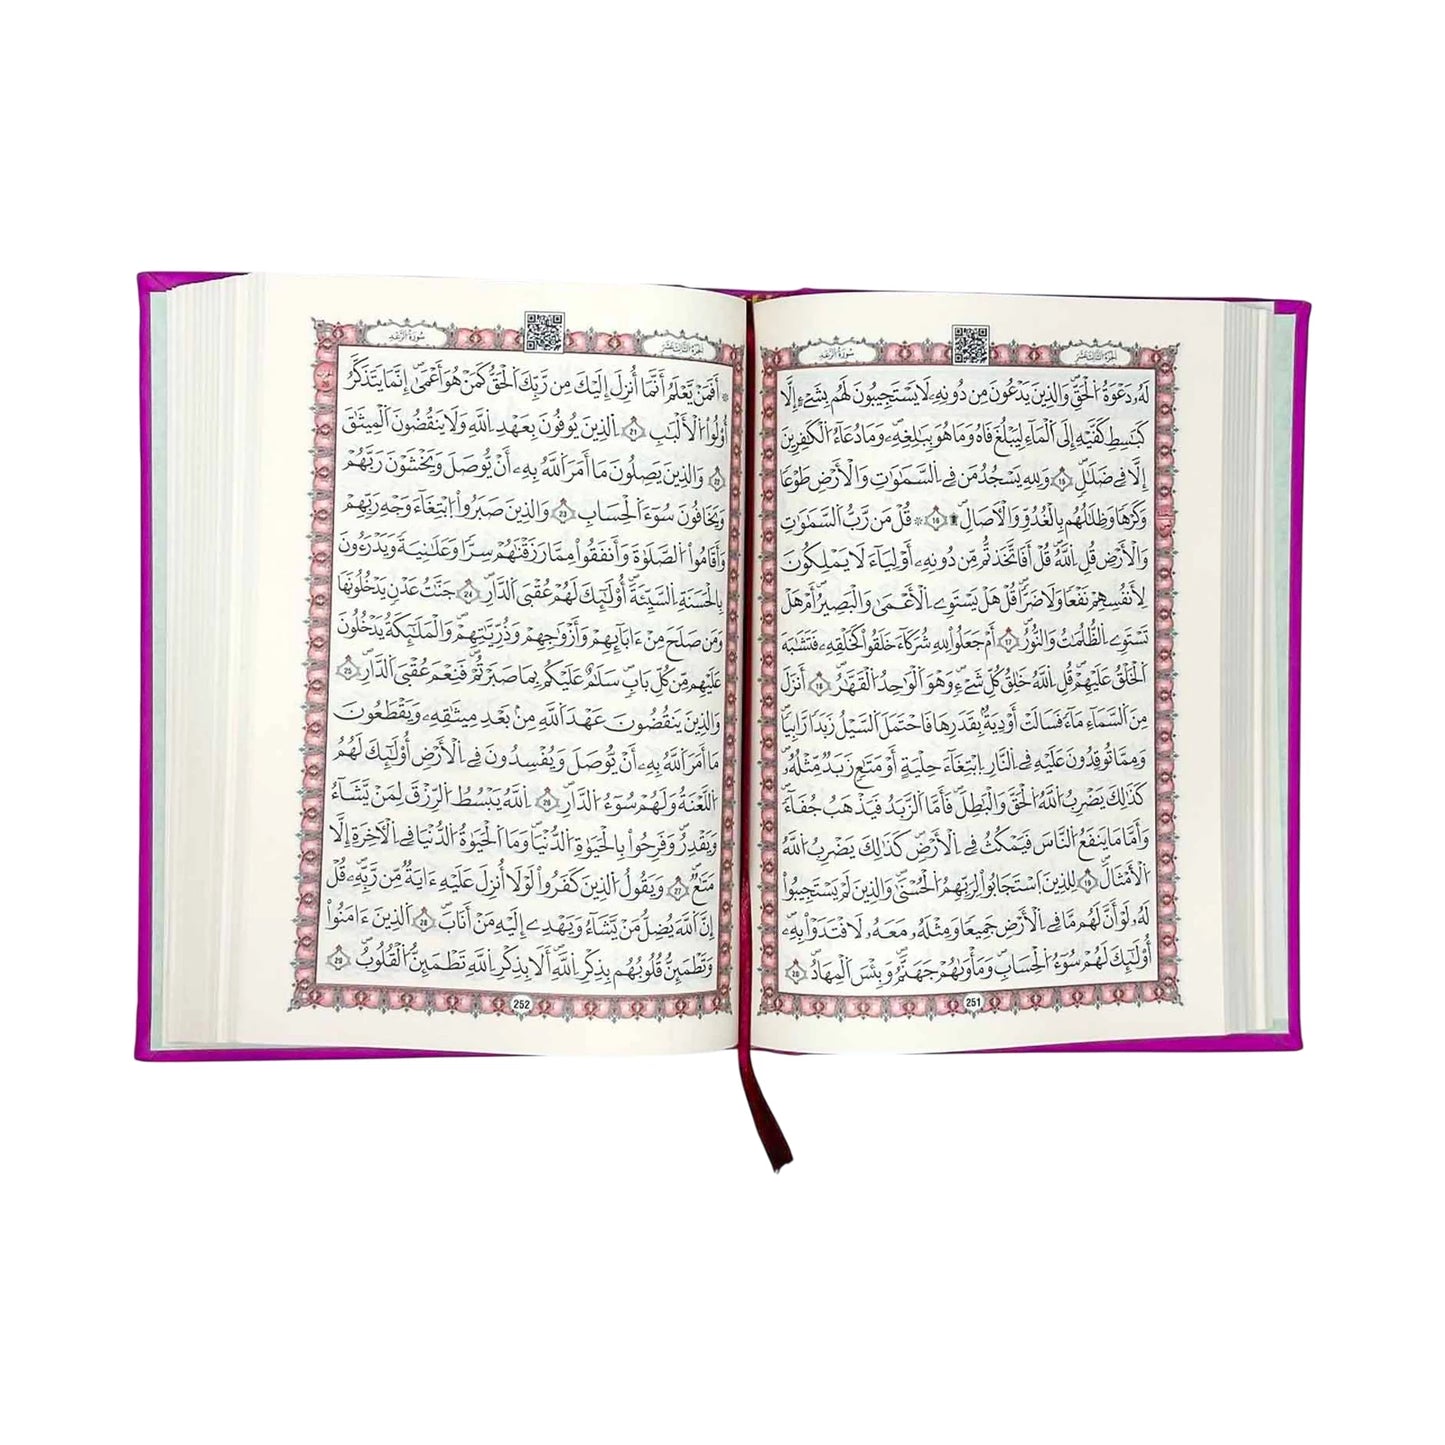 الجزء الثالث عشر
سُورَةُ الرَّعْد
لَهُۥ دَعْوَةُ اُ۬لْحَقِّۖ وَالذِينَ يَدْعُونَ مِن دُونِهِۦ لَا يَسْتَجِيبُونَ لَهُم بِشَےْءٍ اِلَّا
كَبَٰسِطِ كَفَّيْهِ إِلَى اَ۬لْمَآءِ لِيَبْلُغَ فَاهُ وَمَا هُوَ بِبَٰلِغِهِۦۖ وَمَا دُعَآءُ اُ۬لْكَٰفِرِينَ
إِلَّا فِے ضَلَٰلٖۖ 15 وَلِلهِ يَسْجُدُ مَن فِے اِ۬لسَّمَٰوَٰتِ وَالَارْضِ طَوْعاٗ
وَكَرْهاٗ وَظِلَٰلُهُم بِالْغُدُوِّ وَالَاصَالِۖ ۩ 16 ۞ قُلْ مَن رَّبُّ اُ۬لسَّمَٰوَٰتِ
وَالَارْضِ قُلِ اِ۬للَّهُۖ قُلَ اَفَاتَّخَذتُّم مِّن دُونِهِۦٓ أَوْلِيَآءَ لَا يَمْلِكُونَ
لِأَنفُسِهِمْ نَفْعاٗ وَلَا ضَرّاٗۖ قُلْ هَلْ يَسْتَوِے اِ۬لَاعْمَىٰ وَالْبَصِيرُ أَمْ هَلْ
تَسْتَوِے اِ۬لظُّلُمَٰتُ وَالنُّورُۖ 17 أَمْ جَعَلُواْ لِلهِ شُرَكَآءَ خَلَقُواْ كَخَلْقِهِۦ فَتَشَٰبَهَ
اَ۬لْخَلْقُ عَلَيْهِمْۖ قُلِ اِ۬للَّهُ خَٰلِقُ كُلِّ شَےْءٖ وَهُوَ اَ۬لْوَٰحِدُ اُ۬لْقَهَّٰرُۖ 18 أَنزَلَ
مِنَ اَ۬لسَّمَآءِ مَآءٗ فَسَالَتَ اَوْدِيَةُۢ بِقَدَرِهَا فَاحْتَمَلَ اَ۬لسَّيْلُ زَبَداٗ رَّابِياٗۖ
وَمِمَّا تُوقِدُونَ عَلَيْهِ فِے اِ۬لنَّارِ اِ۪بْتِغَآءَ حِلْيَةٍ اَوْ مَتَٰعٖ زَبَدٞ مِّثْلُهُۥۖ
كَذَٰلِكَ يَضْرِبُ اُ۬للَّهُ اُ۬لْحَقَّ وَالْبَٰطِلَۖ فَأَمَّا اَ۬لزَّبَدُ فَيَذْهَبُ جُفَآءٗۖ
وَأَمَّا مَا يَنفَعُ اُ۬لنَّاسَ فَيَمْكُثُ فِے اِ۬لَارْضِۖ كَذَٰلِكَ يَضْرِبُ اُ۬للَّهُ
اُ۬لَامْثَالَۖ 19 لِلذِينَ اَ۪سْتَجَابُواْ لِرَبِّهِمُ اُ۬لْحُسْنَىٰۖ وَالذِينَ لَمْ يَسْتَجِيبُواْ
لَهُۥ لَوَ اَنَّ لَهُم مَّا فِے اِ۬لَارْضِ جَمِيعاٗ وَمِثْلَهُۥ مَعَهُۥ لَافْتَدَوْاْ بِهِۦٓۖ
أُوْلَٰٓئِكَ لَهُمْ سُوٓءُ اُ۬لْحِسَابِۖ وَمَأْوَىٰهُمْ جَهَنَّمُۖ وَبِئْسَ اَ۬لْمِهَادُۖ 20
251
الجزء الثالث عشر
سُورَةُ الرَّعْد
۞ أَفَمَنْ يَّعْلَمُ أَنَّمَآ أُنزِلَ إِلَيْكَ مِن رَّبِّكَ اَ۬لْحَقُّ كَمَنْ هُوَ أَعْمَىٰٓۖ إِنَّمَا يَتَذَكَّرُ
أُوْلُواْ اُ۬لَالْبَٰبِ 21 اِ۬لذِينَ يُوفُونَ بِعَهْدِ اِ۬للَّهِ وَلَا يَنقُضُونَ اَ۬لْمِيثَٰقَ
22 وَالذِينَ يَصِلُونَ مَآ أَمَرَ اَ۬للَّهُ بِهِۦٓ أَنْ يُّوصَلَ وَيَخْشَوْنَ رَبَّهُمْ
وَيَخَافُونَ سُوٓءَ اَ۬لْحِسَابِ 23 وَالذِينَ صَبَرُواْ اُ۪بْتِغَآءَ وَجْهِ رَبِّهِمْ
وَأَقَامُواْ اُ۬لصَّلَوٰةَ وَأَنفَقُواْ مِمَّا رَزَقْنَٰهُمْ سِرّاٗ وَعَلَٰنِيَةٗ وَيَدْرَءُونَ
بِالْحَسَنَةِ اِ۬لسَّيِّئَةَۖ أُوْلَٰٓئِكَ لَهُمْ عُقْبَى اَ۬لدّ۪ارِۖ 24 جَنَّٰتُ عَدْنٖ يَدْخُلُونَهَا
وَمَن صَلَحَ مِنَ اٰبَآئِهِمْ وَأَزْوَٰجِهِمْ وَذُرِّيَّٰتِهِمْۖ وَالْمَلَٰٓئِكَةُ يَدْخُلُونَ
عَلَيْهِم مِّن كُلِّ بَابٖۖ سَلَٰمٌ عَلَيْكُم بِمَا صَبَرْتُمْۖ فَنِعْمَ عُقْبَى اَ۬لدّ۪ارِۖ 25
وَالذِينَ يَنقُضُونَ عَهْدَ اَ۬للَّهِ مِنۢ بَعْدِ مِيثَٰقِهِۦ وَيَقْطَعُونَ
مَآ أَمَرَ اَ۬للَّهُ بِهِۦٓ أَنْ يُّوصَلَ وَيُفْسِدُونَ فِے اِ۬لَارْضِ أُوْلَٰٓئِكَ لَهُمُ
اُ۬للَّعْنَةُ وَلَهُمْ سُوٓءُ اُ۬لدّ۪ارِۖ 26 اِ۬للَّهُ يَبْسُطُ اُ۬لرِّزْقَ لِمَنْ يَّشَآءُ
وَيَقْدِرُۖ وَفَرِحُواْ بِالْحَيَوٰةِ اِ۬لدُّنْي۪اۖ وَمَا اَ۬لْحَيَوٰةُ اُ۬لدُّنْي۪ا فِے اِ۬لَاخِرَةِ إِلَّا
مَتَٰعٞۖ 27 وَيَقُولُ اُ۬لذِينَ كَفَرُواْ لَوْلَآ أُنزِلَ عَلَيْهِ ءَايَةٞ مِّن رَّبِّهِۦۖ قُلِ
اِنَّ اَ۬للَّهَ يُضِلُّ مَنْ يَّشَآءُ وَيَهْدِےٓ إِلَيْهِ مَنَ اَنَابَۖ 28 اَ۬لذِينَ ءَامَنُواْ
وَتَطْمَئِنُّ قُلُوبُهُم بِذِكْرِ اِ۬للَّهِۖ أَلَا بِذِكْرِ اِ۬للَّهِ تَطْمَئِنُّ اُ۬لْقُلُوبُۖ 29
252